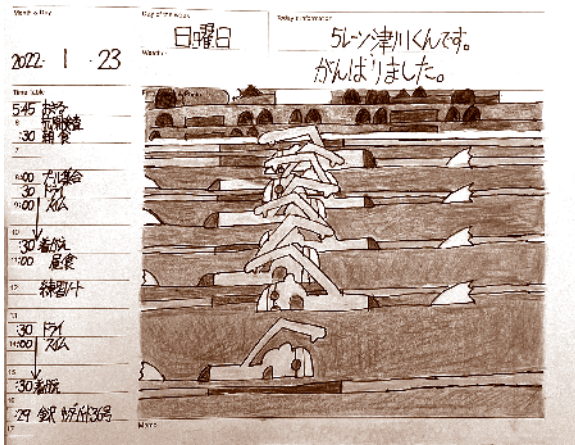 Month & Day
2022. 1 .23
Day of the week
日曜日
Weather
Today's information
5レーン津川くんです。
がんばりました。
Time Table
5:45 おきる
6
:30 朝食
7
8:00 プール集合
:30 ドライ
9:00 スイム
10
:30 着がえ
11:00 昼食
12 練習ノート
13
:30 ドライ
14:00 スイム
15
:30 着がえ
16
:29 金沢
17
Memo